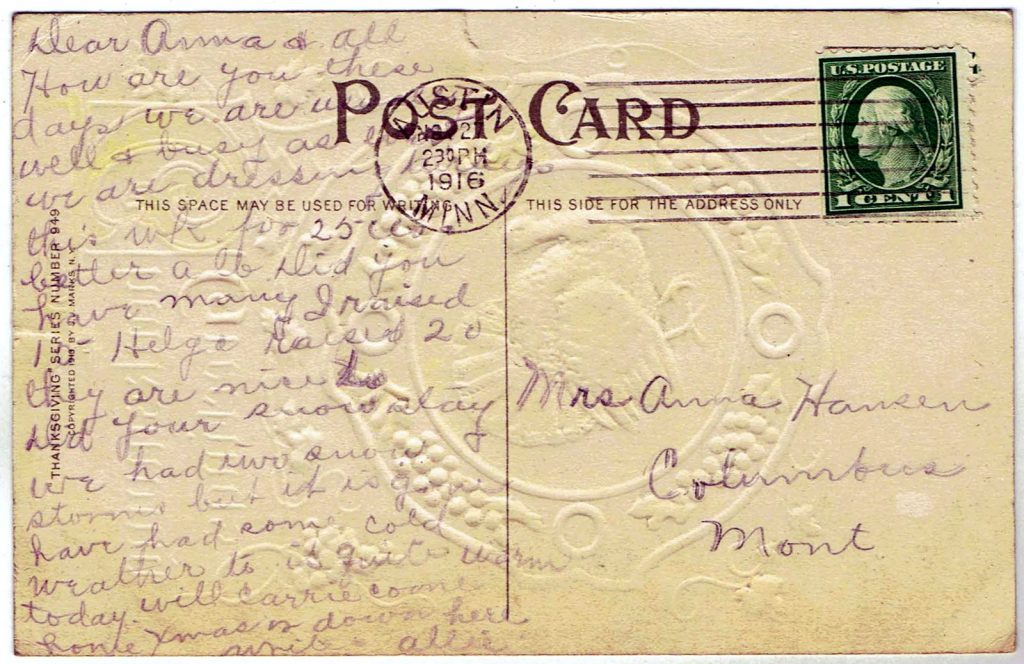 Dear Anna & all
How are you these
days we are
well & busy as
we are dressin
this wk for 25 cts.
better a lb Did you
have many I raised
Helga Raised 20
they are nice
did your snow stay
we had two snow
storms but it is
have had some cold
weather to is quite warm
today. will Carrie come
home Xmas or down here
write allie
POST CARD
THIS SPACE MAY BE USED FOR WRITING
THIS SIDE FOR THE ADDRESS ONLY
AUSTIN
2
230 PM
1916
MINN.
U.S. POSTAGE
1 CENT 1
Mrs Anna Hansen
Columbus
Mont.
"THANKSGIVING" SERIES NUMBER 949
COPYRIGHTED MARKS, N.Y.